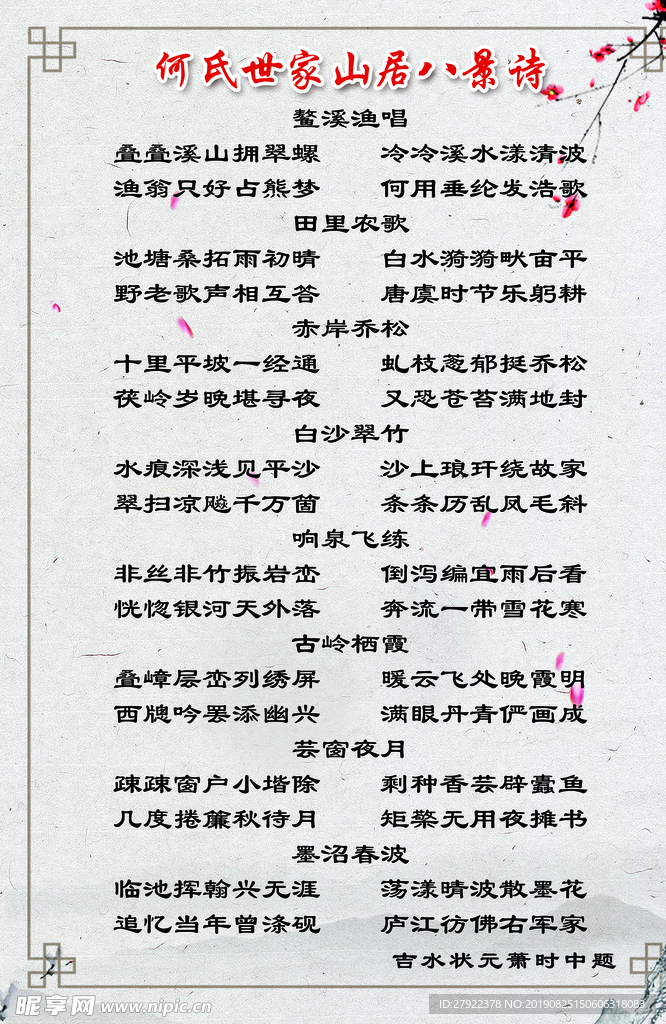 何氏世家山居八景诗
鳌溪渔唱
叠叠溪山拥翠螺 冷冷溪水漾清波
渔翁只好占熊梦 何用垂纶发浩歌
田里农歌
池塘桑拓雨初晴 白水漪漪畎亩平
野老歌声相互答 唐虞时节乐躬耕
赤岸乔松
十里平坡一经通 虬枝葱郁挺乔松
茯岭岁晚堪寻夜 又恐苍苔满地封
白沙翠竹
水痕深浅见平沙 沙上琅玕绕故家
翠扫凉飚千万箇 条条历乱凤毛斜
响泉飞练
非丝非竹振岩峦 倒泻编宜雨后看
恍惚银河天外落 奔流一带雪花寒
古岭栖霞
叠嶂层峦列绣屏 暖云飞处晚霞明
西牕吟罢添幽兴 满眼丹青俨画成
芸窗夜月
疎疎窗户小堦除 剩种香芸辟蠹鱼
几度捲簾秋待月 矩檠无用夜摊书
墨沼春波
临池挥翰兴无涯 荡漾晴波散墨花
追忆当年曾涤砚 庐江彷佛右军家
吉水状元萧时中题
昵享网 www.nipic.cn
ID:27922378 NO:20190825150606318083